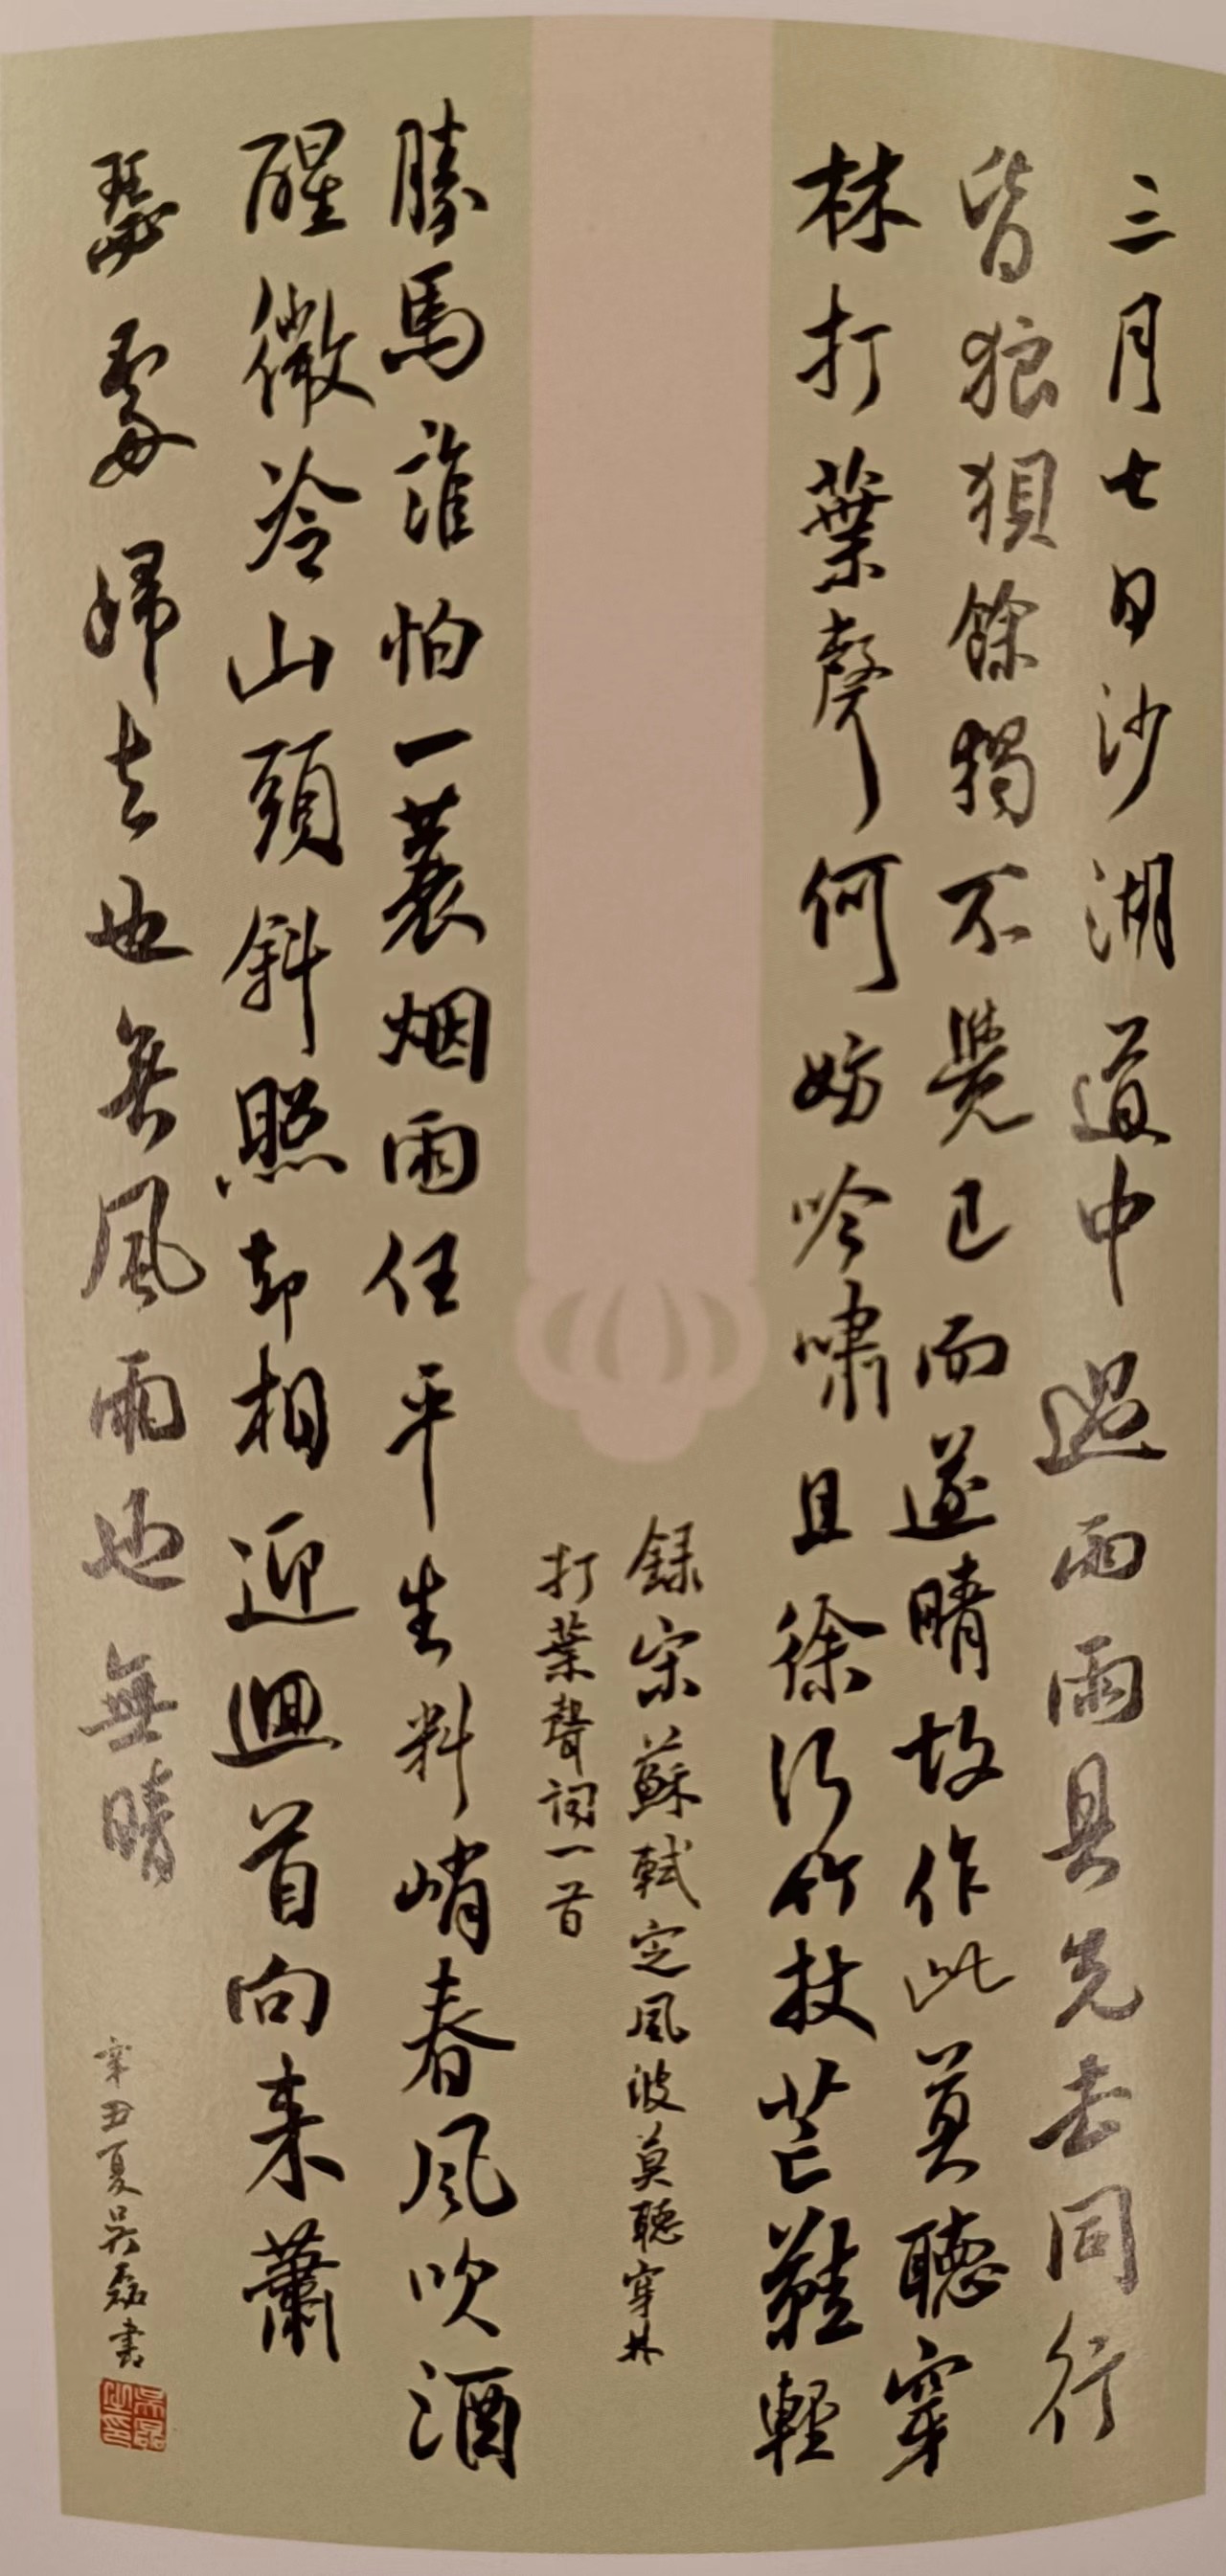 三月七日沙湖道中遇雨雨具先去同行
皆狼狽餘獨不覺已而遂晴故作此莫聽穿
林打葉聲何妨吟嘯且徐行竹杖芒鞋輕
録宋蘇軾定風波莫聽穿林
打葉聲词一首
勝馬誰怕一蓑烟雨任平生料峭春風吹酒
醒微冷山頭斜照却相迎迴首向来蕭
瑟處歸去也無風雨也無晴
辛丑夏吴磊書
吴磊之印